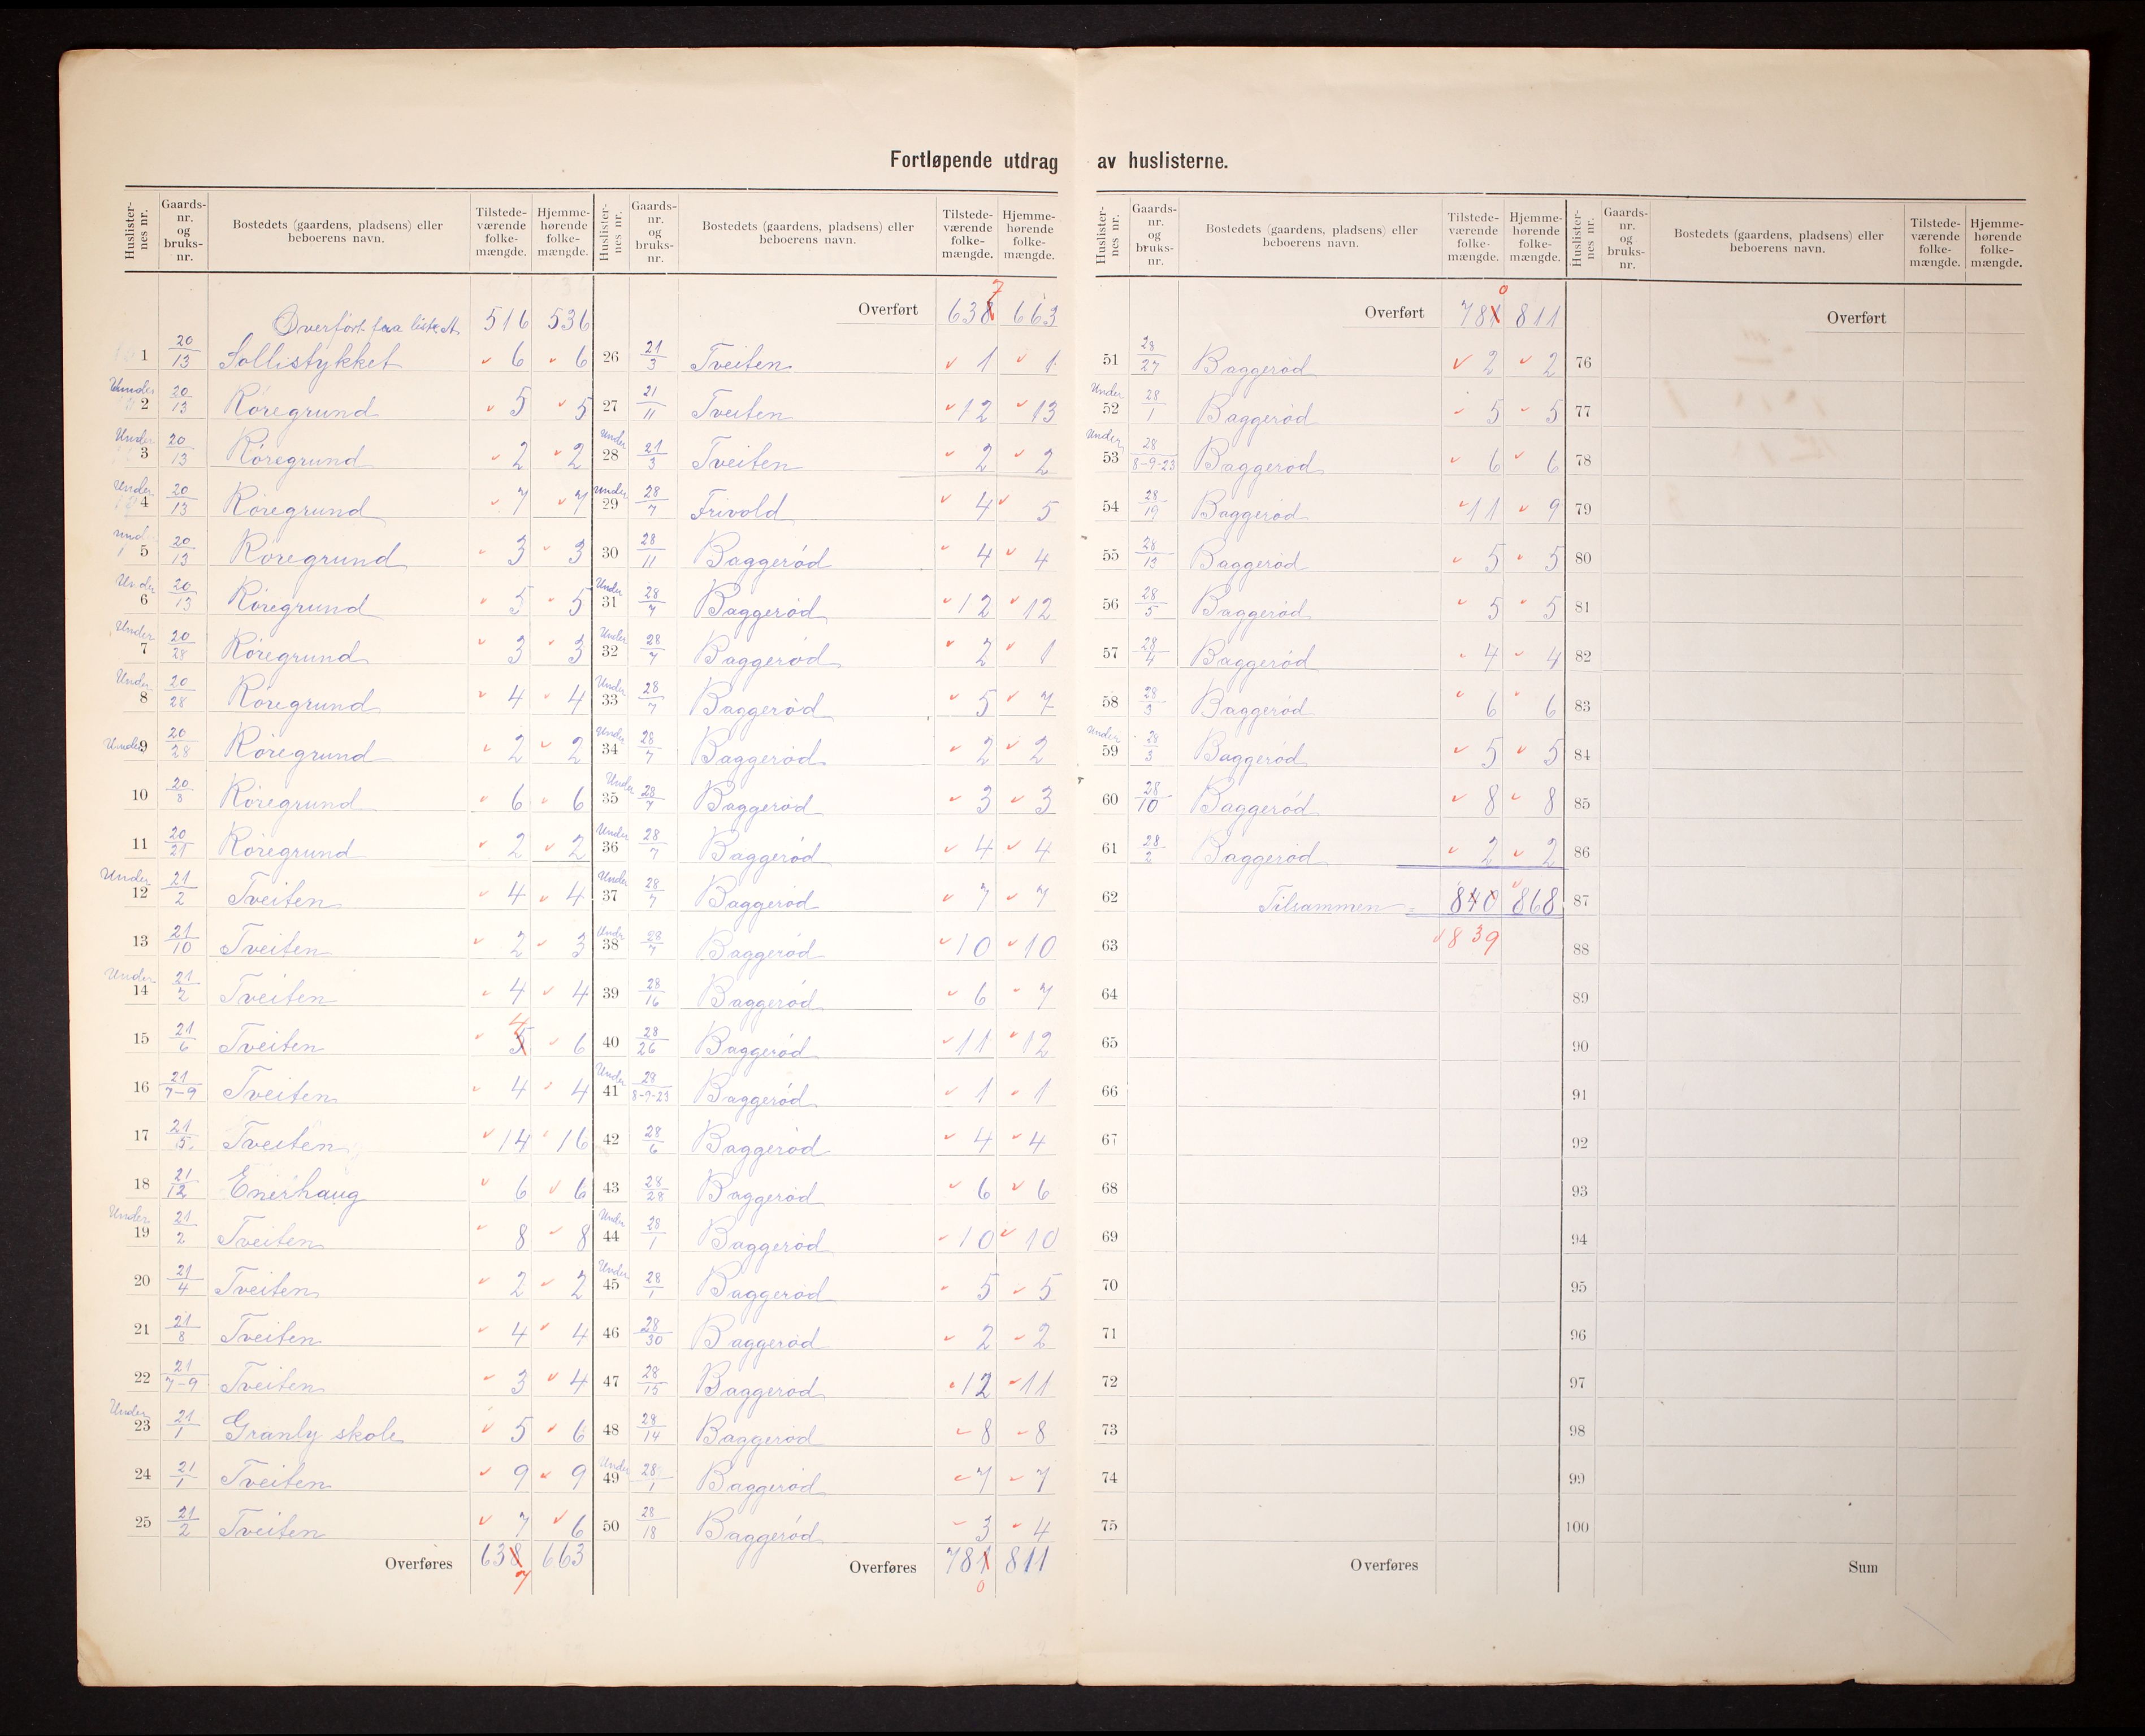 Fortløpende utdrag av huslisterne.
Huslisternes nr. Gaards-nr. og bruks-nr. Bostedets (gaardens, pladsens) eller beboerens navn. Tilstede-værende folke-mængde. Hjemme-hørende folke-mængde.
Overført fra liste A. 516 536
1 20/13 Sollistykket 6 6
Under 2 20/13 Röregrund 5 5
Under 3 20/13 Röregrund 2 2
Under 4 20/13 Röregrund 7 7
5 20/13 Röregrund 3 3
Under 6 20/13 Röregrund 5 5
Under 7 20/28 Röregrund 3 3
Under 8 20/28 Röregrund 4 4
Under 9 20/28 Röregrund 2 2
10 20/8 Röregrund 6 6
11 20/21 Röregrund 2 2
Under 12 21/2 Tveiten 4 4
13 21/10 Tveiten 2 3
Under 14 21/2 Tveiten 4 4
15 21/6 Tveiten 5 4 6
16 21/7-9 Tveiten 4 4
17 21/5 Tveiten 14 16
18 21/12 Enerhaug 6 6
Under 19 21/2 Tveiten 8 8
20 21/4 Tveiten 2 2
21 21/8 Tveiten 4 4
22 21/7-9 Tveiten 3 4
Under 23 21/1 Granly skole 5 6
24 21/1 Tveiten 9 9
25 21/2 Tveiten 7 6
Overføres 638 7 663
Huslisternes nr. Gaards-nr. og bruks-nr. Bostedets (gaardens, pladsens) eller beboerens navn. Tilstede-værende folke-mængde. Hjemme-hørende folke-mængde.
Overført 638 7 663
26 21/3 Tveiten 1 1
27 21/11 Tveiten 12 13
Under 28 21/3 Tveiten 2 2
Under 29 28/7 Frivold 4 5
30 28/11 Baggeröd 4 4
Under 31 28/7 Baggeröd 12 12
Under 32 28/7 Baggeröd 2 1
Under 33 28/7 Baggeröd 5 7
Under 34 28/7 Baggeröd 2 2
Under 35 28/7 Baggeröd 3 3
Under 36 28/7 Baggeröd 4 4
Under 37 28/7 Baggeröd 7 7
Undr 38 28/7 Baggeröd 10 10
39 28/16 Baggeröd 6 7
40 28/26 Baggeröd 11 12
Under 41 28/8-9-23 Baggeröd 1 1
42 28/6 Baggeröd 4 4
43 28/28 Baggeröd 6 6
Under 44 28/1 Baggeröd 10 10
Under 45 28/1 Baggeröd 5 5
46 28/30 Baggeröd 2 2
47 28/15 Baggeröd 12 11
48 28/14 Baggeröd 8 8
Under 49 28/1 Baggeröd 7 7
50 28/18 Baggeröd 3 4
Overføres 781 0 811
Huslisternes nr. Gaards-nr. og bruks-nr. Bostedets (gaardens, pladsens) eller beboerens navn. Tilstede-værende folke-mængde. Hjemme-hørende folke-mængde.
Overført 781 0 811
51 28/27 Baggeröd 2 2
Under 52 28/1 Baggeröd 5 5
Under 53 28/8-9-23 Baggeröd 6 6
54 28/19 Baggeröd 11 9
55 28/13 Baggeröd 5 5
56 28/5 Baggeröd 5 5
57 28/4 Baggeröd 4 4
58 28/3 Baggeröd 6 6
Under 59 28/3 Baggeröd 5 5
60 28/10 Baggeröd 8 8
61 28/2 Baggeröd 2 2
62 Tilsammen = 840 868
63 839
64
65
66
67
68
69
70
71
72
73
74
75
Overføres
Huslisternes nr. Gaards-nr. og bruks-nr. Bostedets (gaardens, pladsens) eller beboerens navn. Tilstede-værende folke-mængde. Hjemme-hørende folke-mængde.
Overført
76
77
78
79
80
81
82
83
84
85
86
87
88
89
90
91
92
93
94
95
96
97
98
99
100
Sum